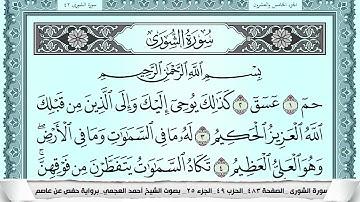 الجزء الخامس والعشرون
سورة الشورى ٤٢
سُورَةُ الشُّورَىٰ
بِسْمِ اللَّهِ الرَّحْمَٰنِ الرَّحِيمِ
حمٓ ١ عٓسٓقٓ ٢ كَذَٰلِكَ يُوحِيٓ إِلَيْكَ وَإِلَى الَّذِينَ مِن قَبْلِكَ
اللَّهُ الْعَزِيزُ الْحَكِيمُ ٣ لَهُۥ مَا فِي السَّمَٰوَٰتِ وَمَا فِي الْأَرْضِۖ
وَهُوَ الْعَلِيُّ الْعَظِيمُ ٤ تَكَادُ السَّمَٰوَٰتُ يَتَفَطَّرْنَ مِن فَوْقِهِنَّۚ
سورة الشورى _ الصفحة ٤٨٣ _ الحزب ٤٩ _ الجزء ٢٥ _ بصوت الشيخ أحمد العجمي _ برواية حفص عن عاصم